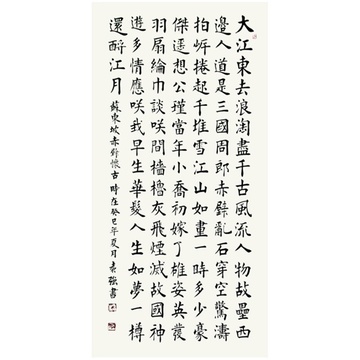 大江東去浪淘盡千古風流人物故壘西
邊人道是三國周郎赤壁亂石穿空驚濤
拍岸捲起千堆雪江山如畫一時多少豪
傑遥想公瑾當年小喬初嫁了雄姿英發
羽扇綸巾談咲間檣櫓灰飛煙滅故國神
遊多情應咲我早生華髮人生如夢一樽
還酹江月 蘇東坡赤壁懷古 時在癸巳年夏月袁强書